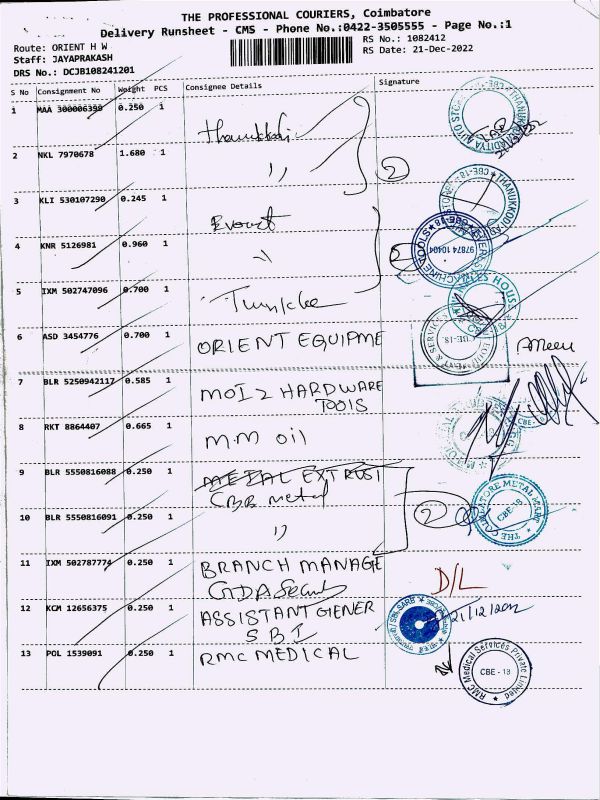 THE PROFESSIONAL COURIERS, Coimbatore
Delivery Runsheet - CMS - Phone No.:0422-3505555 - Page No.:1
Route: ORIENT H W
RS No.: 1082412
Staff: JAYAPRAKASH
RS Date: 21-Dec-2022
DRS No.: DCJB108241201
S No Consignment No Weight PCS Consignee Details Signature
1 MAA 300006399 0.250 1
2 NKL 7970678 1.680 1
2
3 KLI 530107290 0.245 1
4 KNR 5126981 0.960 1
97874 10404
5 IXM 502747096 0.700 1
6 ASD 3454776 0.700 1 ORIENT EQUIPME
CBE-18
7 BLR 5250942117 0.585 1 MOI2 HARDWARE
TOOLS
8 RKT 8864407 0.665 1 M.M oil
9 BLR 5550816088 0.250 1 METAL EXTRUST
CBR metal
10 BLR 5550816091 0.250 1 "
2
THE COIMBATORE METAL MART
CBE-18
11 IXM 502787774 0.250 1 BRANCH MANAGE
D/L
12 KCM 12656375 0.250 1 ASSISTANT GENER
SBI
21/12/2022
13 POL 1539091 0.250 1 RMC MEDICAL
RMC Medical Services Private Limited
CBE - 18